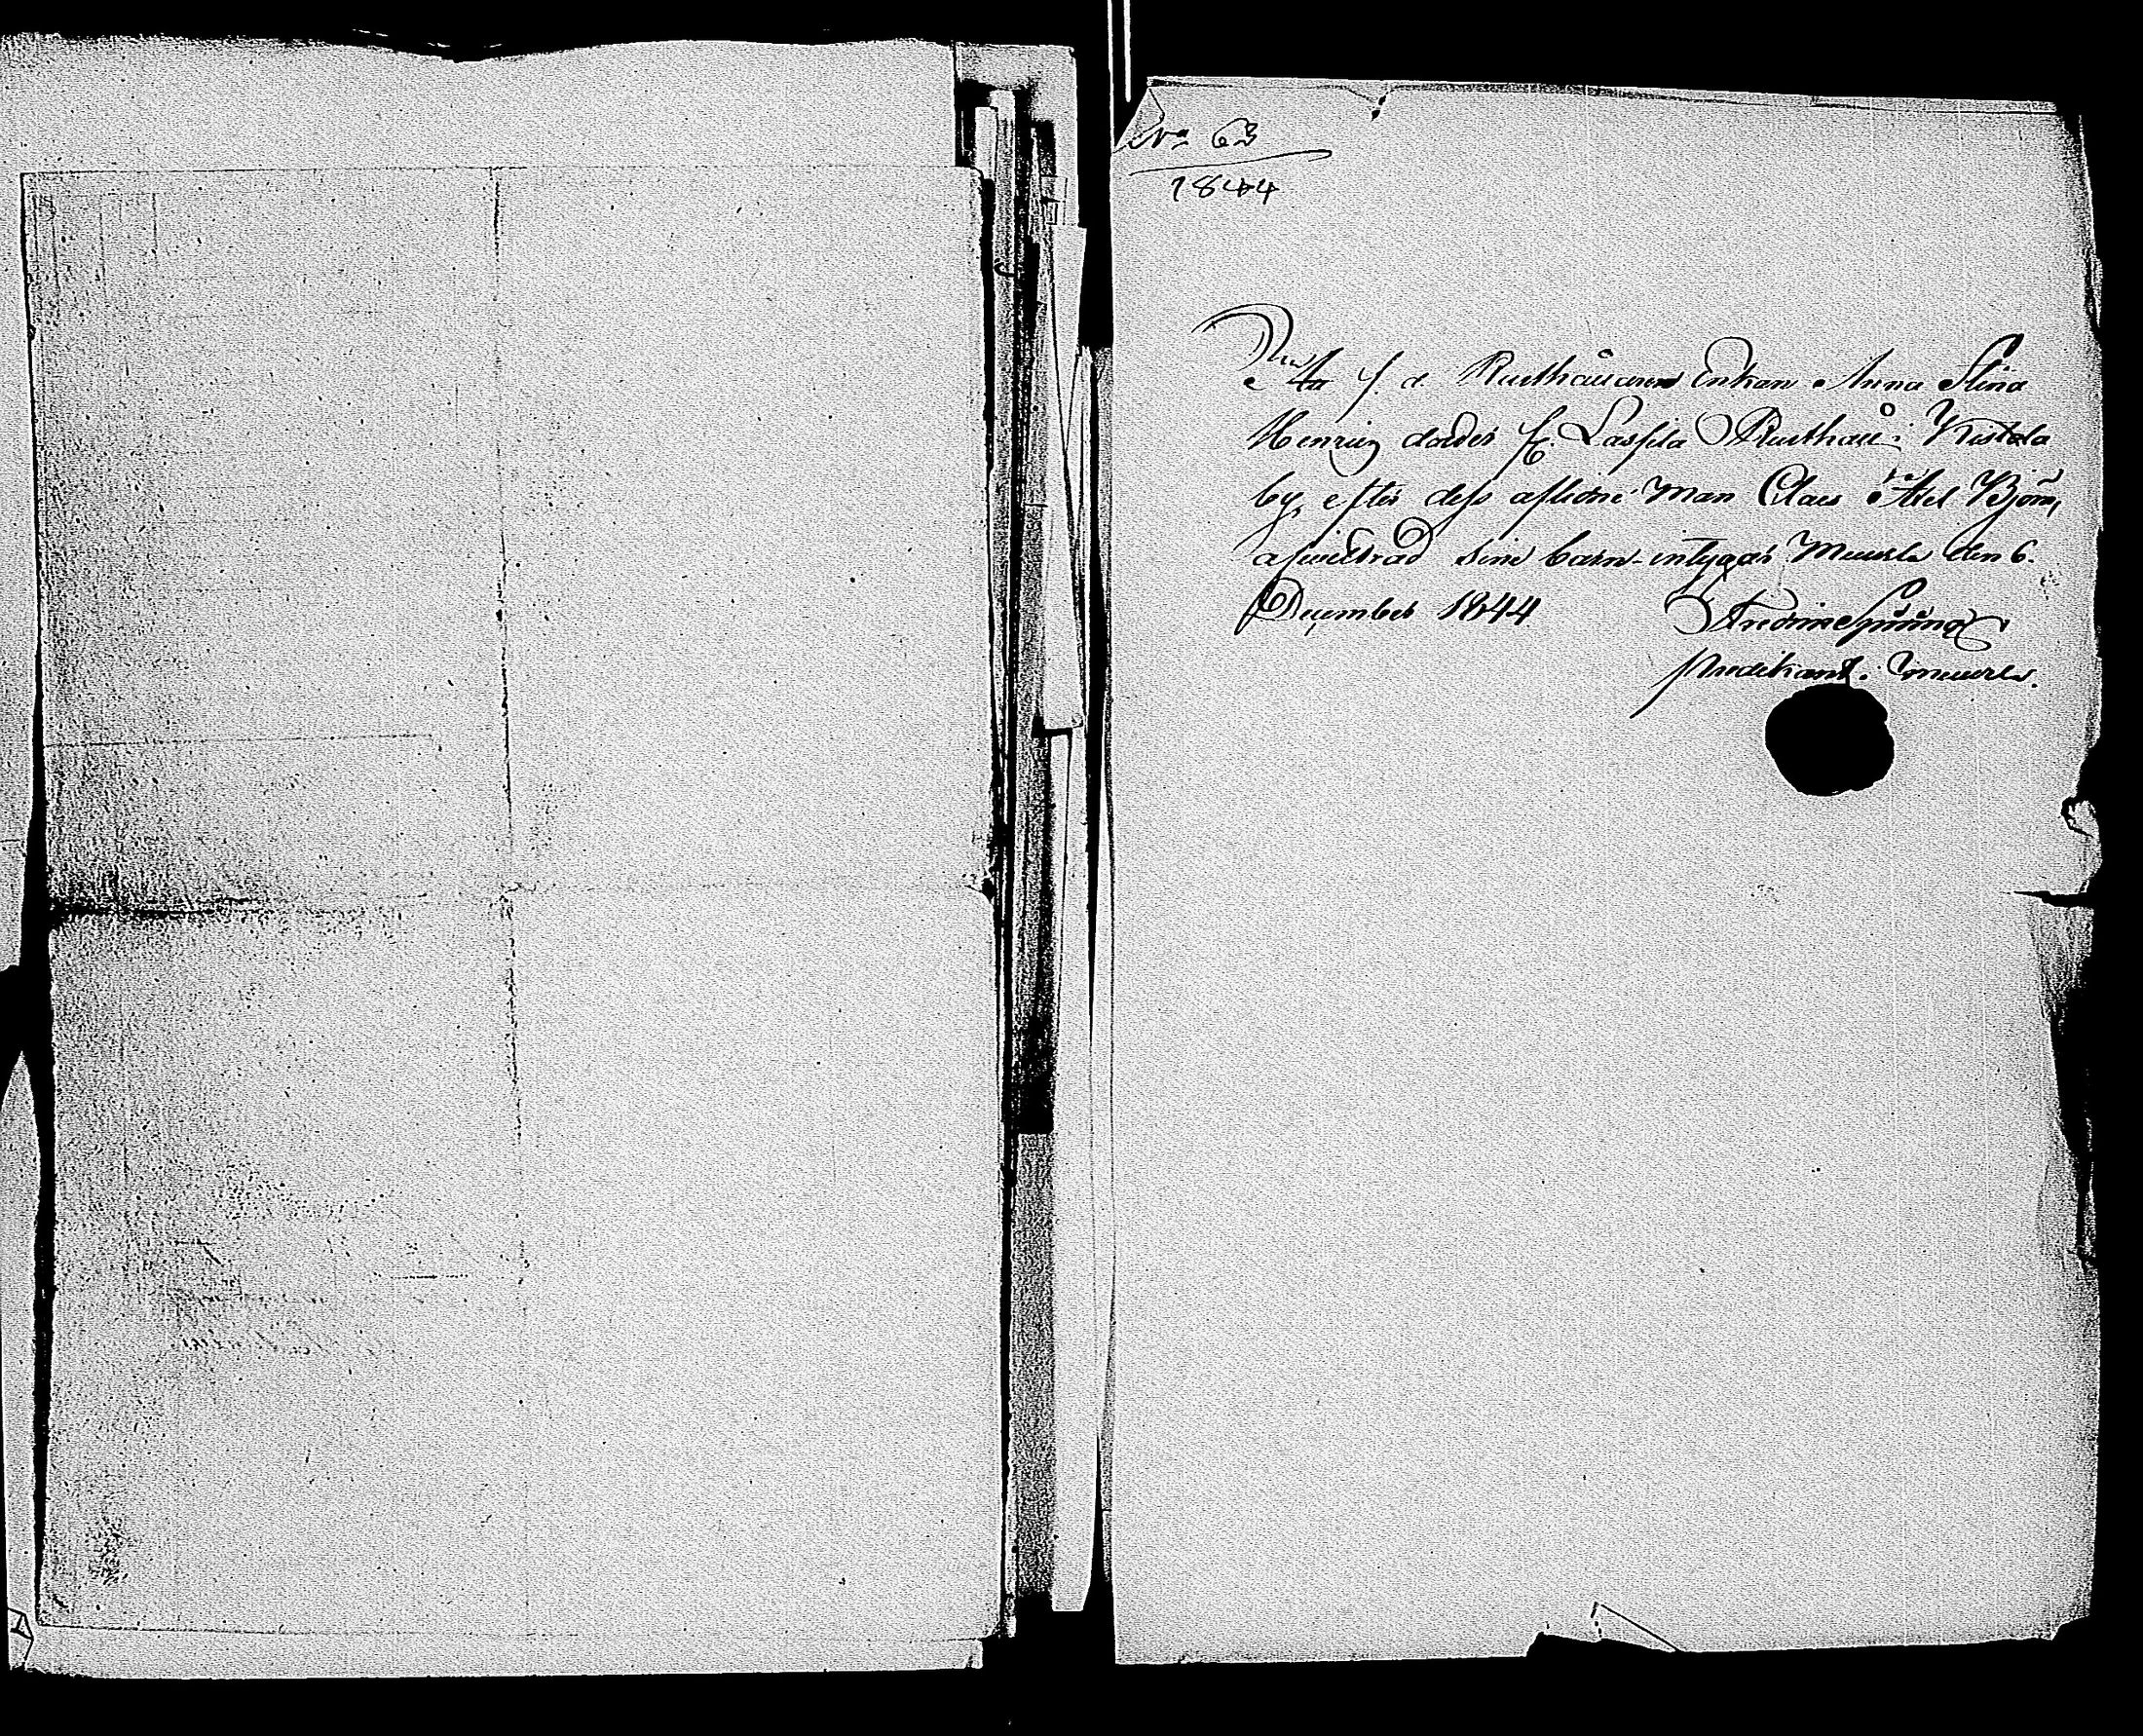 No 63
1844
Att f. d. Rusthållaren Enkan Anna Stina
Henrics dotter fr. Lassila Rusthåll i Kistola
by, efter dess aflidne Man Claes Axel Björn,
afvittrad sine barn - intygar Muurla den 6.
December 1844
Predikant i Muurla.